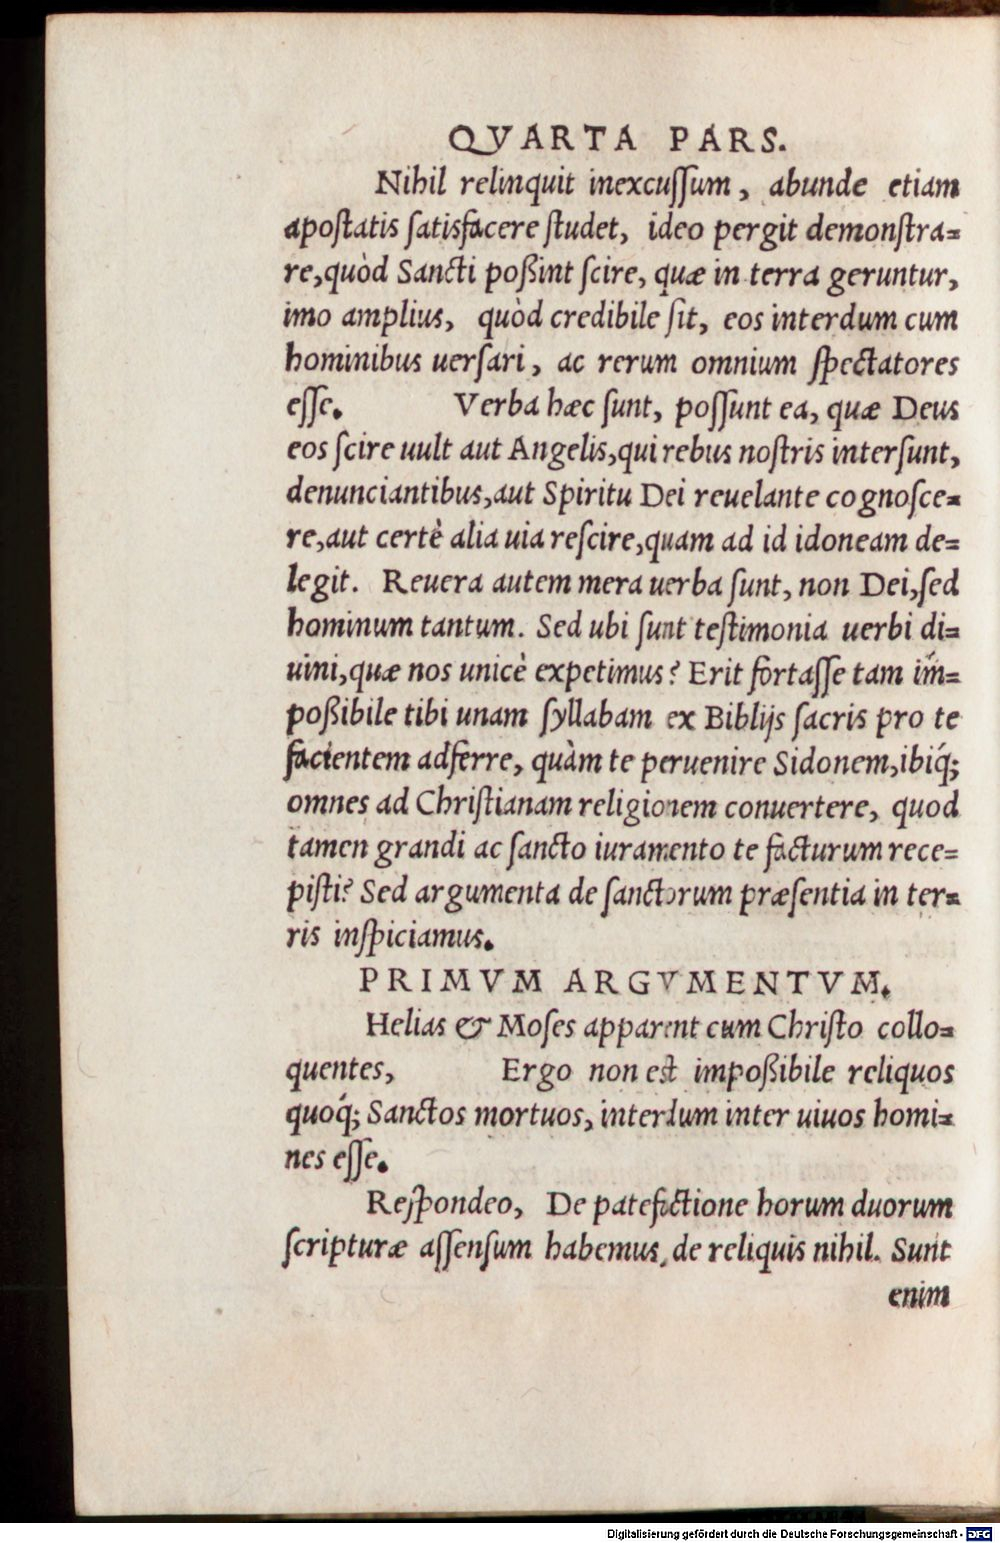 QVARTA PARS.
Nihil relinquit inexcuſſum, abunde etiam
apoſtatis ſatisfacere ſtudet, ideo pergit demonſtra=
re, quòd Sancti poßint ſcire, quæ in terra geruntur,
imo amplius, quòd credibile ſit, eos interdum cum
hominibus uerſari, ac rerum omnium ſpectatores
eſſe. Verba hæc ſunt, poſſunt ea, quæ Deus
eos ſcire uult aut Angelis, qui rebus noſtris interſunt,
denunciantibus, aut Spiritu Dei reuelante cognoſce=
re, aut certè alia uia reſcire, quam ad id idoneam de=
legit. Reuera autem mera uerba ſunt, non Dei, ſed
hominum tantum. Sed ubi ſunt teſtimonia uerbi di=
uini, quæ nos unicè expetimus? Erit fortaſſe tam im=
poßibile tibi unam ſyllabam ex Biblijs ſacris pro te
facientem adferre, quàm te peruenire Sidonem, ibiq́;
omnes ad Chriſtianam religionem conuertere, quod
tamen grandi ac ſancto iuramento te facturum rece=
piſti? Sed argumenta de ſanctorum præſentia in ter=
ris inſpiciamus.
PRIMVM ARGVMENTVM.
Helias & Moſes apparent cum Chriſto collo=
quentes, Ergo non est impoßibile reliquos
quoq́; Sanctos mortuos, interdum inter uiuos homi=
nes eſſe.
Reſpondeo, De patefactione horum duorum
ſcripturæ aſſenſum habemus, de reliquis nihil. Sunt
enim
Digitalisierung gefördert durch die Deutsche Forschungsgemeinschaft - DFG